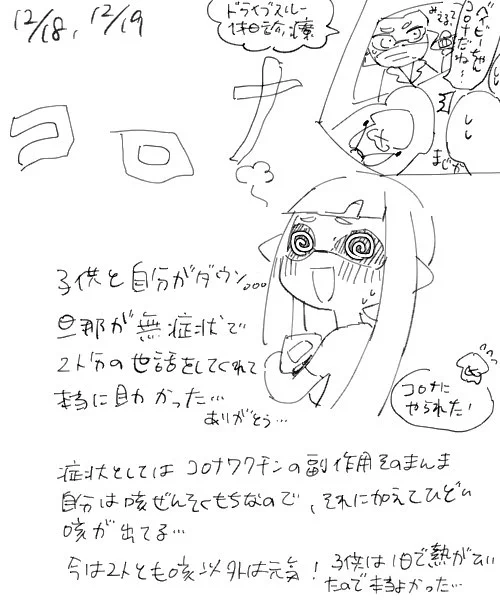 12/18, 12/19
ドライブスルー
休日診療
ベイビーちゃん
コロナだね〜
みてるぞ
しし
しし
まじか
コロナ
子供と自分がダウン...
旦那が無症状で
2人分の世話をしてくれて
本当に助かった…
ありがとう…
コロナに
やられた!
症状としてはコロナワクチンの副作用そのまんま
自分は咳ぜんそくもちなので、それに加えてひどい
咳が出てる…
今は2人とも咳以外は元気! 子供は1日で熱がひい
たので本当よかった…